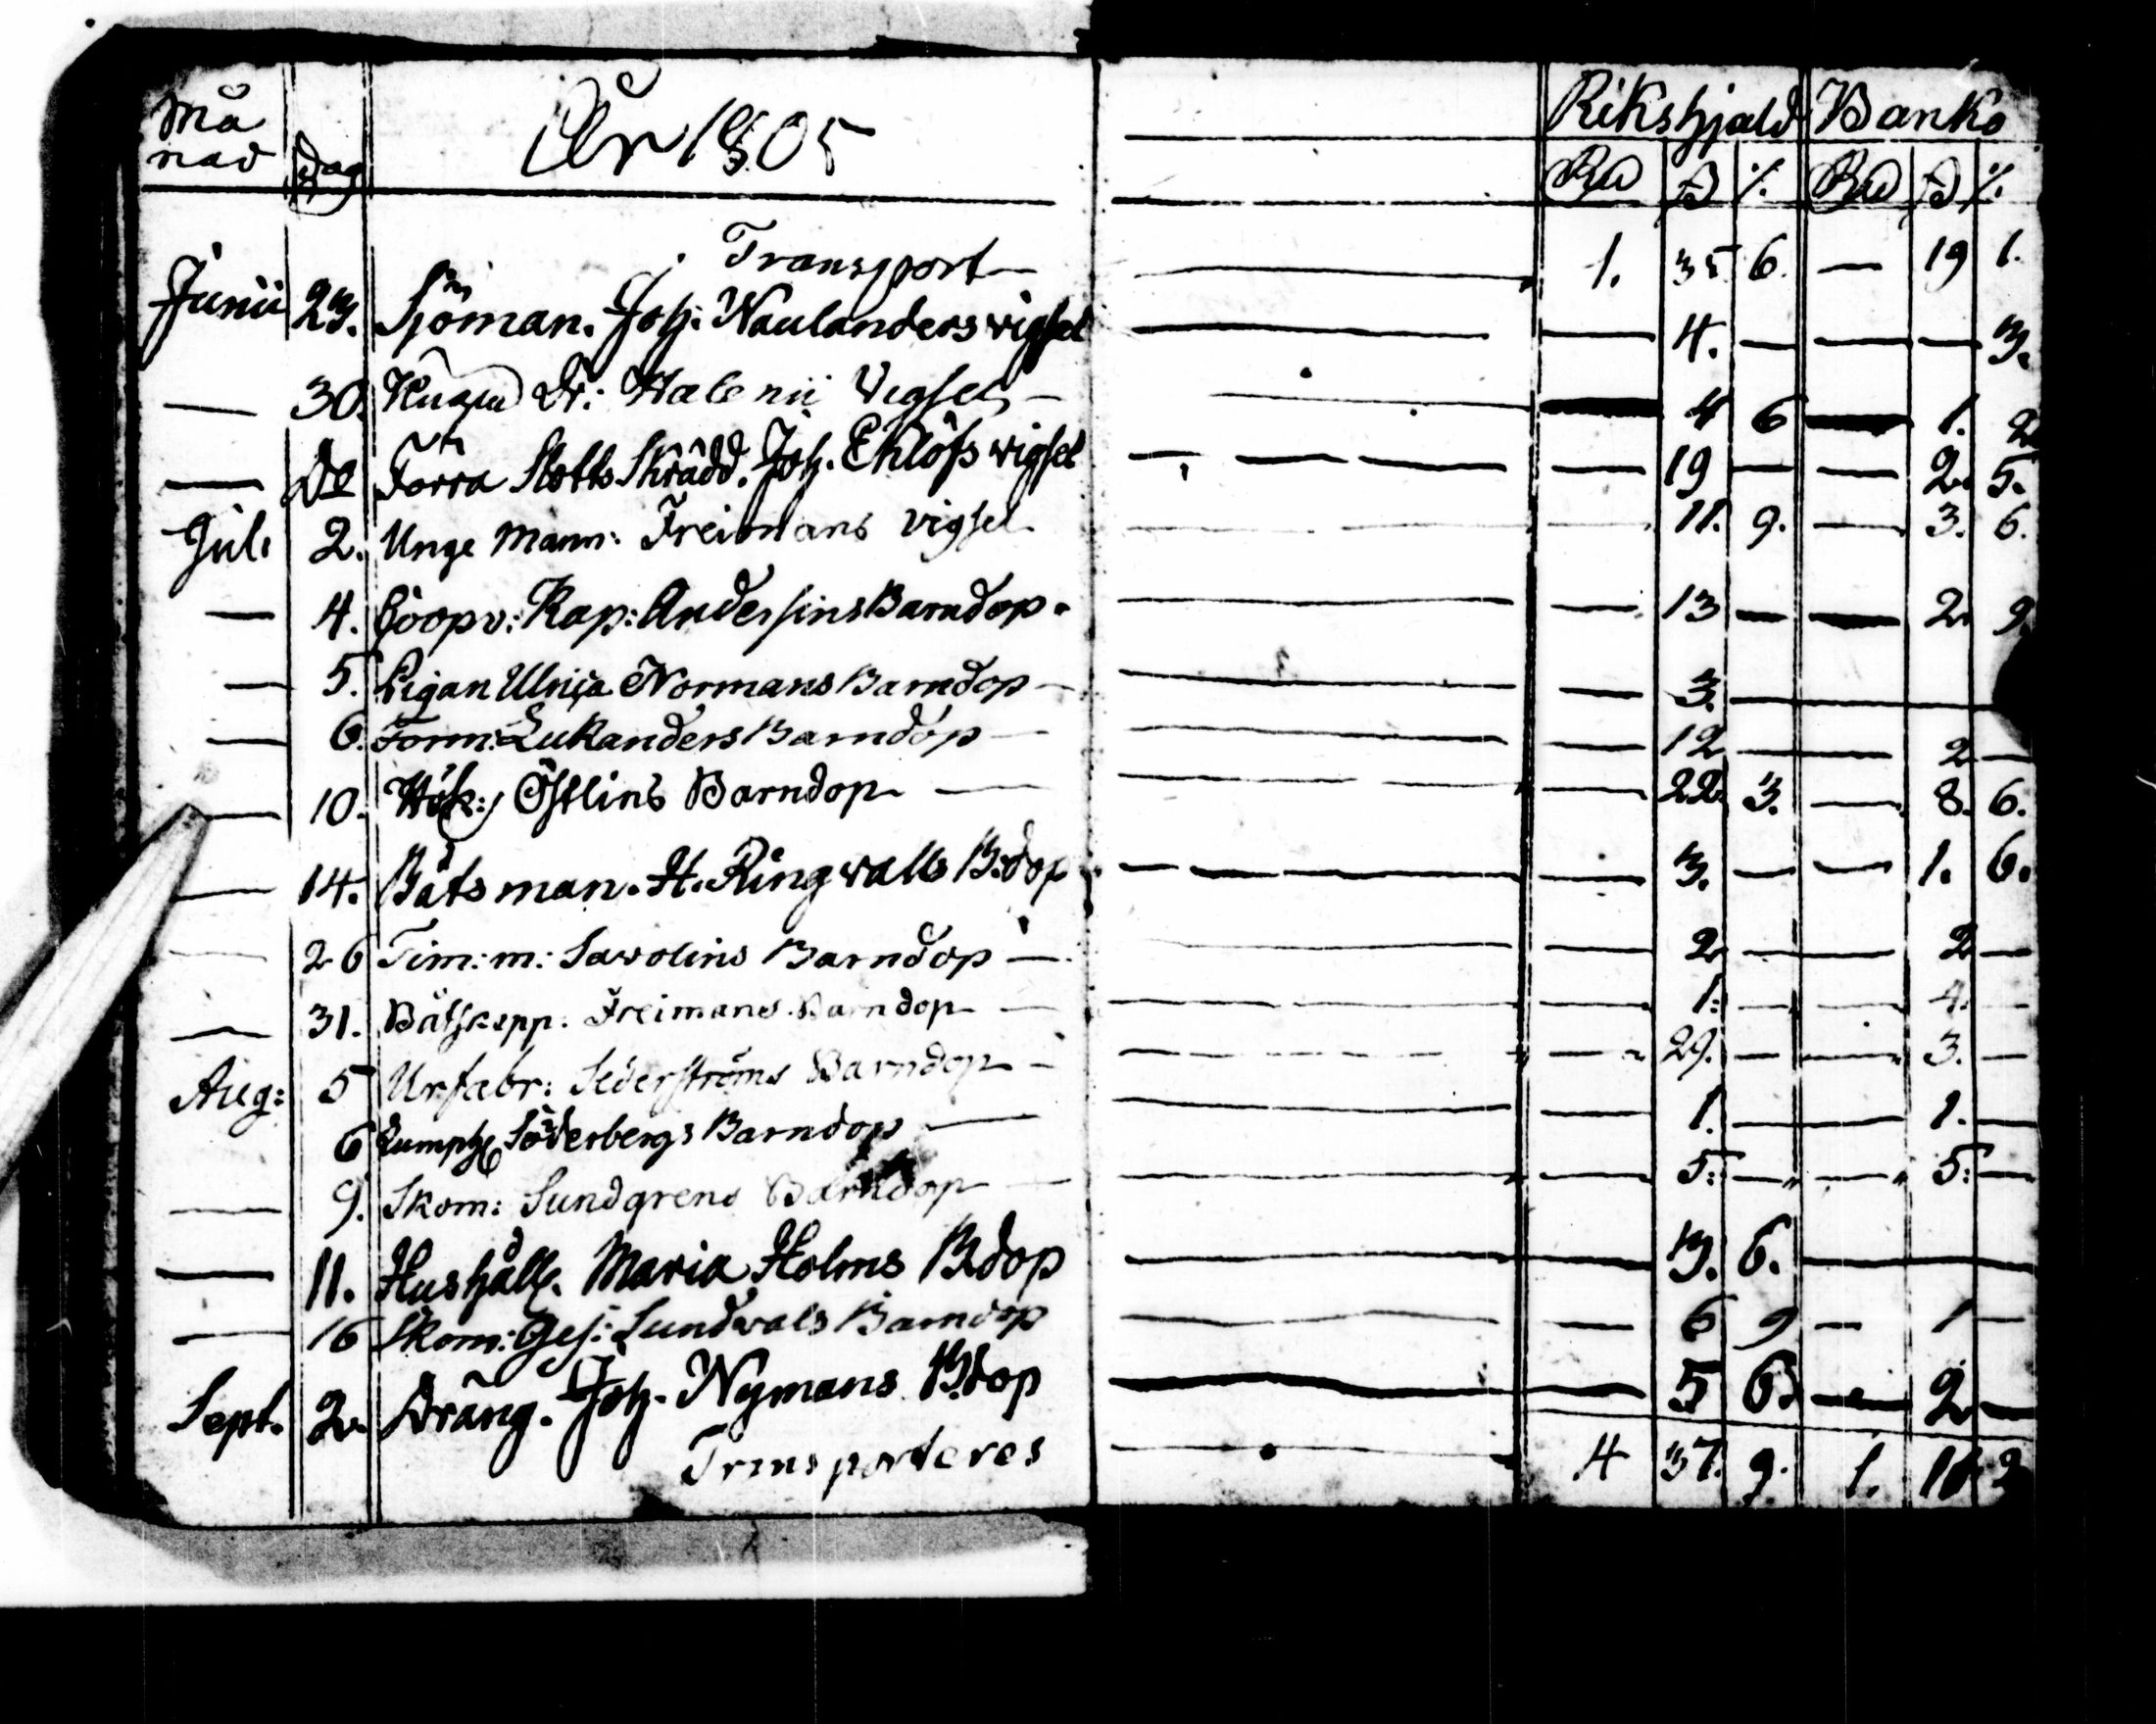 Månad Dag År 1805 Rikshjald Banko
Rd ß % Rd ß %
Transport 1. 35 6. — 19 1.
Junii 23. Sjöman. Joh: Naulanders vigsel — 4. — — — 3.
— 30. Dr: Vigsel — — 4 6 — 1. 2
— Do Förra Slotts Skrädd. Joh. Ehlöfs vigsel — 19 — — 2. 5.
Jul. 2. Unge Mann: Freimans vigsel — 11. 9. — 3. 6.
— 4. Coopv: Kap: Andersins Barndop. — 13 — — 2. 9.
— 5. Pigan Ulrica Normans Barndop — — 3. —
— 6. Form: Lukanders Barndop — — 12 — — 2 —
— 10. Hök: Östlins Barndop — — 22 3. — 8. 6.
— 14. Båtsman. H. Ringwalls B:dop — 3. — — 1. 6.
— 26 Tim: m: Savolins Barndop — — 2 — — 2 —
— 31. Båtskepp. Freimans Barndop — — 1: — — 4. —
Aug: 5 Urfabr: Sederströms Barndop — — 29. — — 3. —
6 Söderbergs Barndop — — 1. — — 1. —
— 9. Skom: Sundgrens Barndop — — 5: — — 5: —
— 11. Hushåll. Maria Holms B:dop — 13. 6. —
— 16 Skom: Ges: Sundvals Barndop — 6 9 — 1 —
Sept. 2. Dräng. Joh. Nymans B:dop — 5 6. — 2 —
Transporteres — 4 37. 9. 1. 11 2